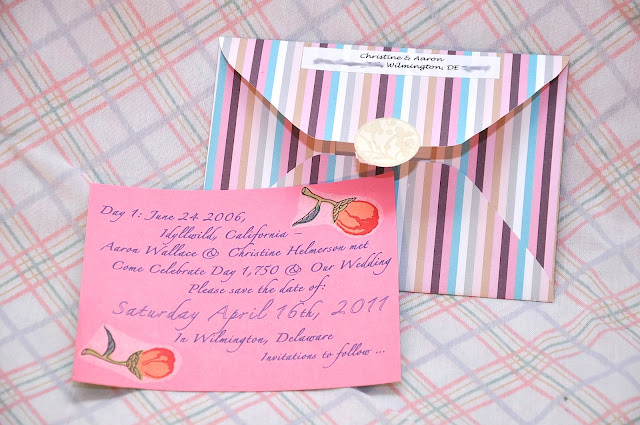 Christine & Aaron
Wilmington, DE
Day 1: June 24 2006,
Idyllwild, California –
Aaron Wallace & Christine Helmerson met
Come Celebrate Day 1,750 & Our Wedding
Please save the date of:
Saturday April 16th, 2011
In Wilmington, Delaware
Invitations to follow ...